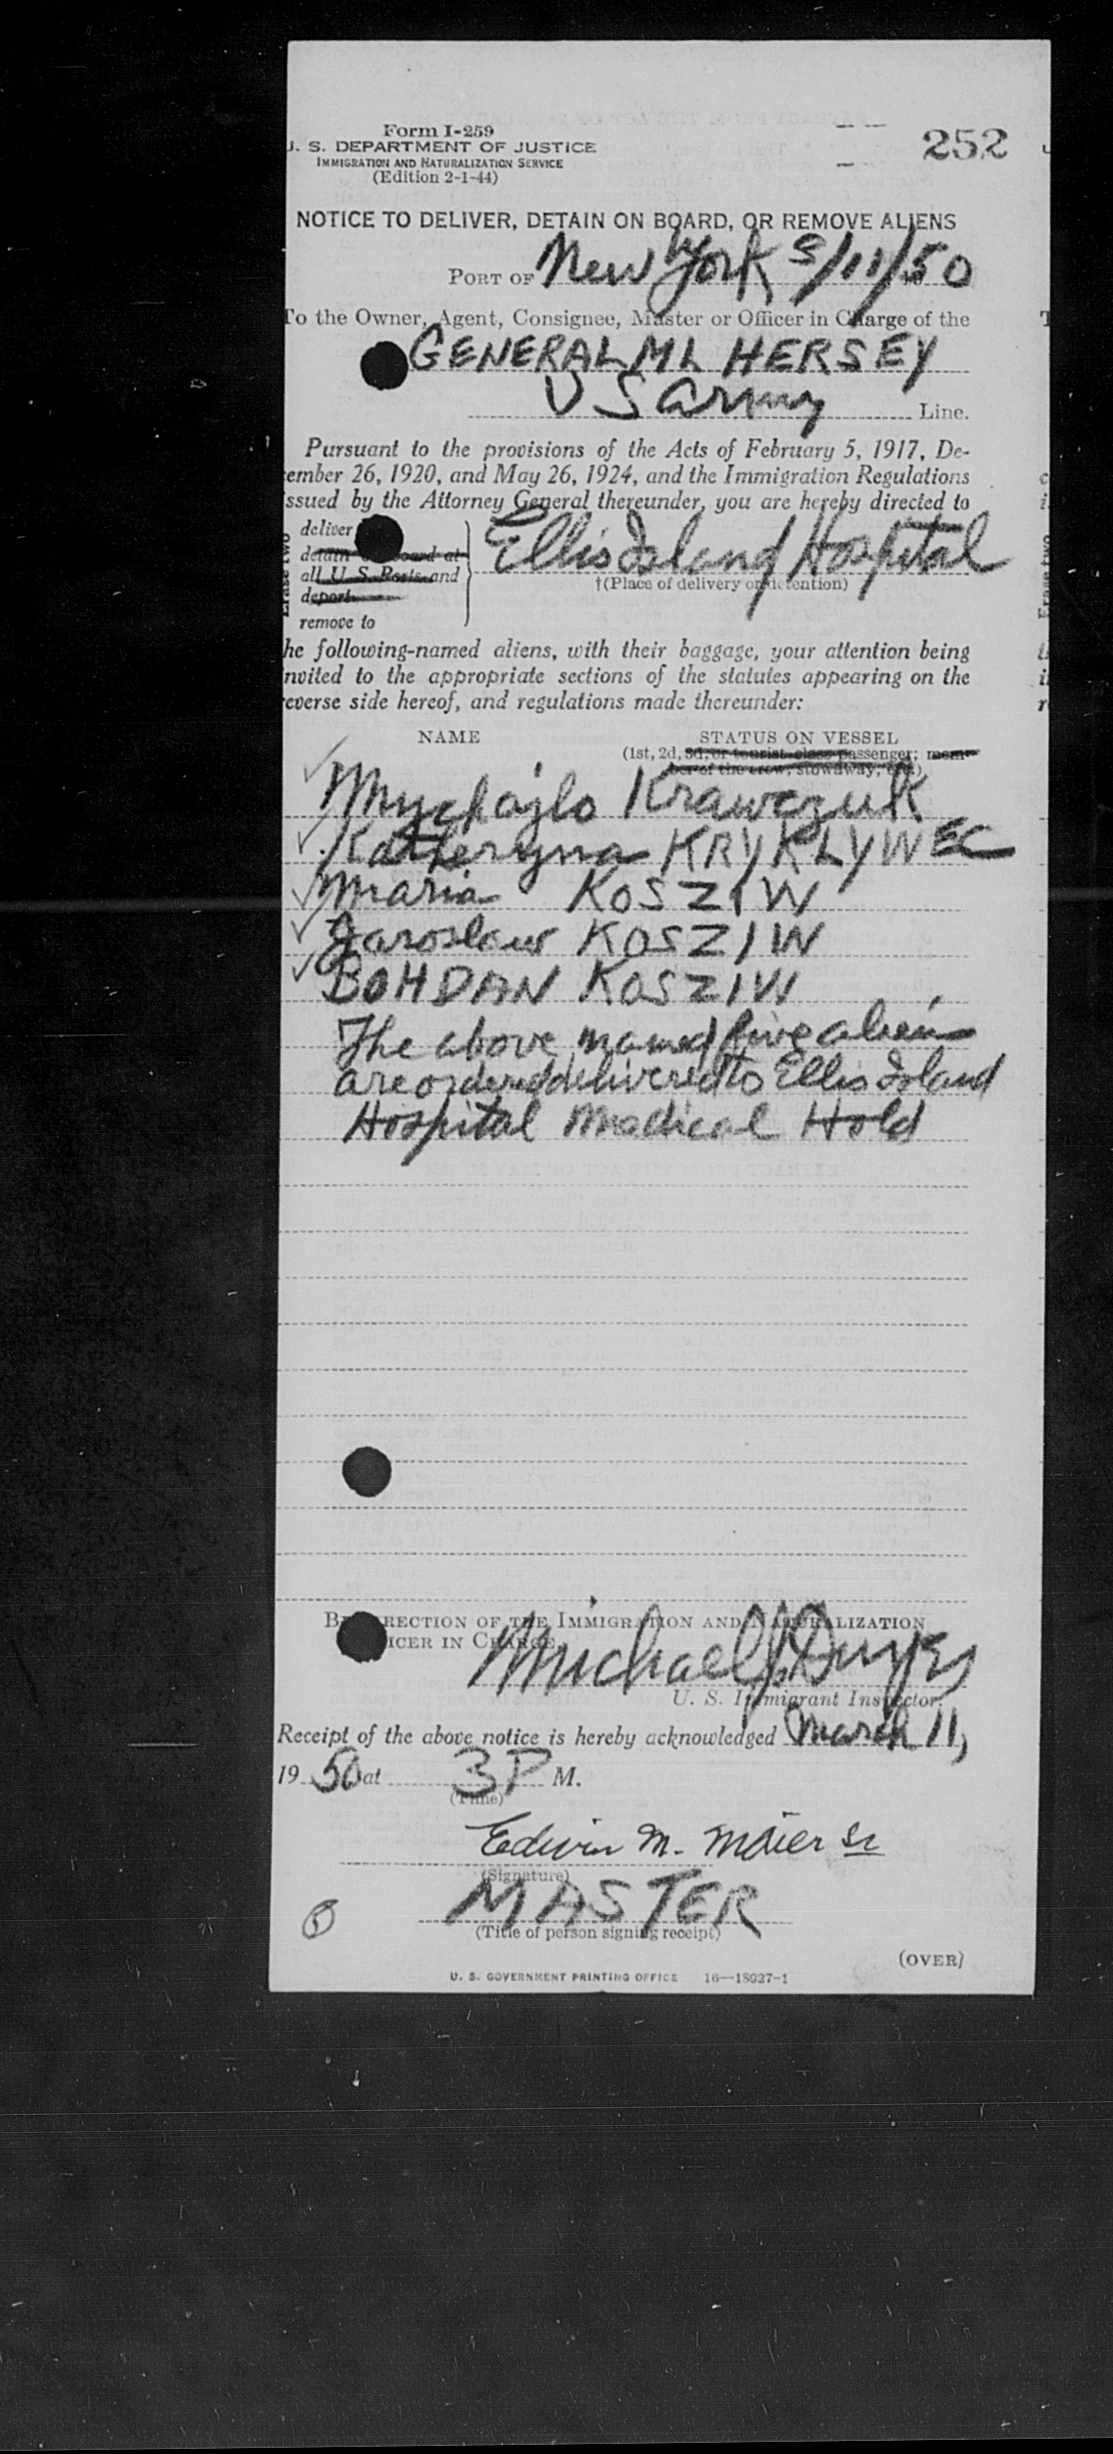 Form I-259
252
U. S. DEPARTMENT OF JUSTICE
IMMIGRATION AND NATURALIZATION SERVICE
(Edition 2-1-44)
NOTICE TO DELIVER, DETAIN ON BOARD, OR REMOVE ALIENS
PORT OF New York 3/11/50
To the Owner, Agent, Consignee, Master or Officer in Charge of the
GENERAL ML HERSEY
US Army Line.
Pursuant to the provisions of the Acts of February 5, 1917, De-
cember 26, 1920, and May 26, 1924, and the Immigration Regulations
issued by the Attorney General thereunder, you are hereby directed to
deliver
detain on board at
all U. S. Ports and
deport
remove to
Erase two
Ellis Island Hospital
†(Place of delivery or detention)
the following-named aliens, with their baggage, your attention being
invited to the appropriate sections of the statutes appearing on the
reverse side hereof, and regulations made thereunder:
NAME STATUS ON VESSEL
(1st, 2d, 3d, or tourist-class passenger; mem-
ber of the crew, stowaway, etc.)
Mychajlo Krawczuk
Katheryna KRYKLYWEC
Maria KOSZIW
Jaroslaw KOSZIW
BOHDAN KOSZIW
The above named five aliens
are ordered delivered to Ellis Island
Hospital Medical Hold
BY DIRECTION OF THE IMMIGRATION AND NATURALIZATION
OFFICER IN CHARGE
Michael J.
U. S. Immigrant Inspector.
Receipt of the above notice is hereby acknowledged March 11,
19 50 at 3 P M.
(Time)
Edwin M. Maier Sr
(Signature)
MASTER
(Title of person signing receipt)
(OVER)
U. S. GOVERNMENT PRINTING OFFICE 16—18927-1